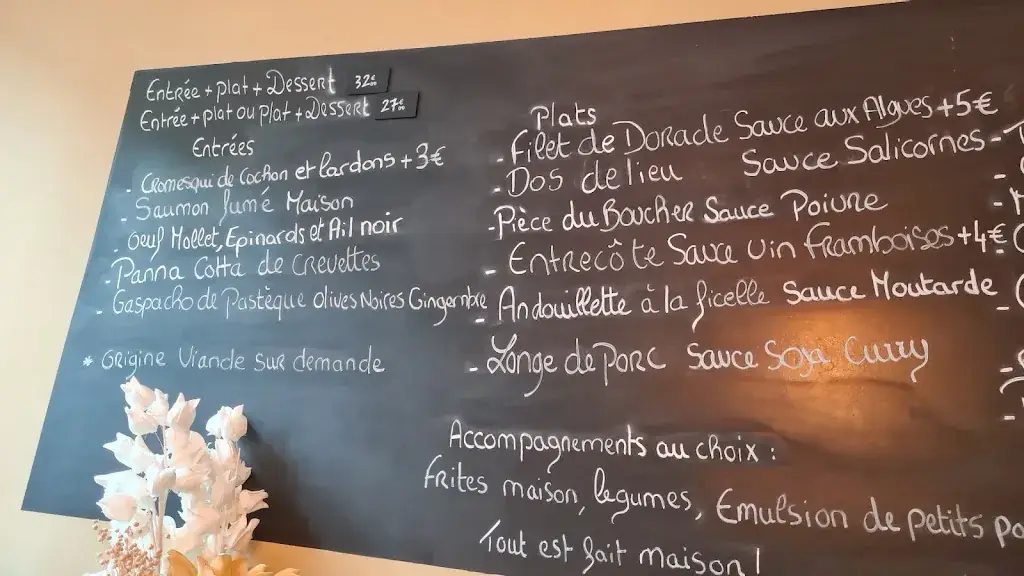 Entrée + plat + Dessert 32€
Entrée + plat ou Plat + Dessert 27€
Entrées
- Cromesqui de Cochon et lardons + 3€
- Saumon fumé Maison
- Oeuf Mollet, Epinards et Ail noir
- Panna Cotta de Crevettes
- Gaspacho de Pastèque Olives Noires Gingembre
* Origine Viande sur demande
Plats
- Filet de Dorade Sauce aux Algues +5€
- Dos de lieu Sauce Salicornes
- Pièce du Boucher Sauce Poivre
- Entrecôte Sauce vin framboises +4€
- Andouillette à la ficelle Sauce Moutarde
- Longe de Porc Sauce Soja Curry
Accompagnements au choix :
Frites maison, légumes, Emulsion de petits
Tout est fait maison !